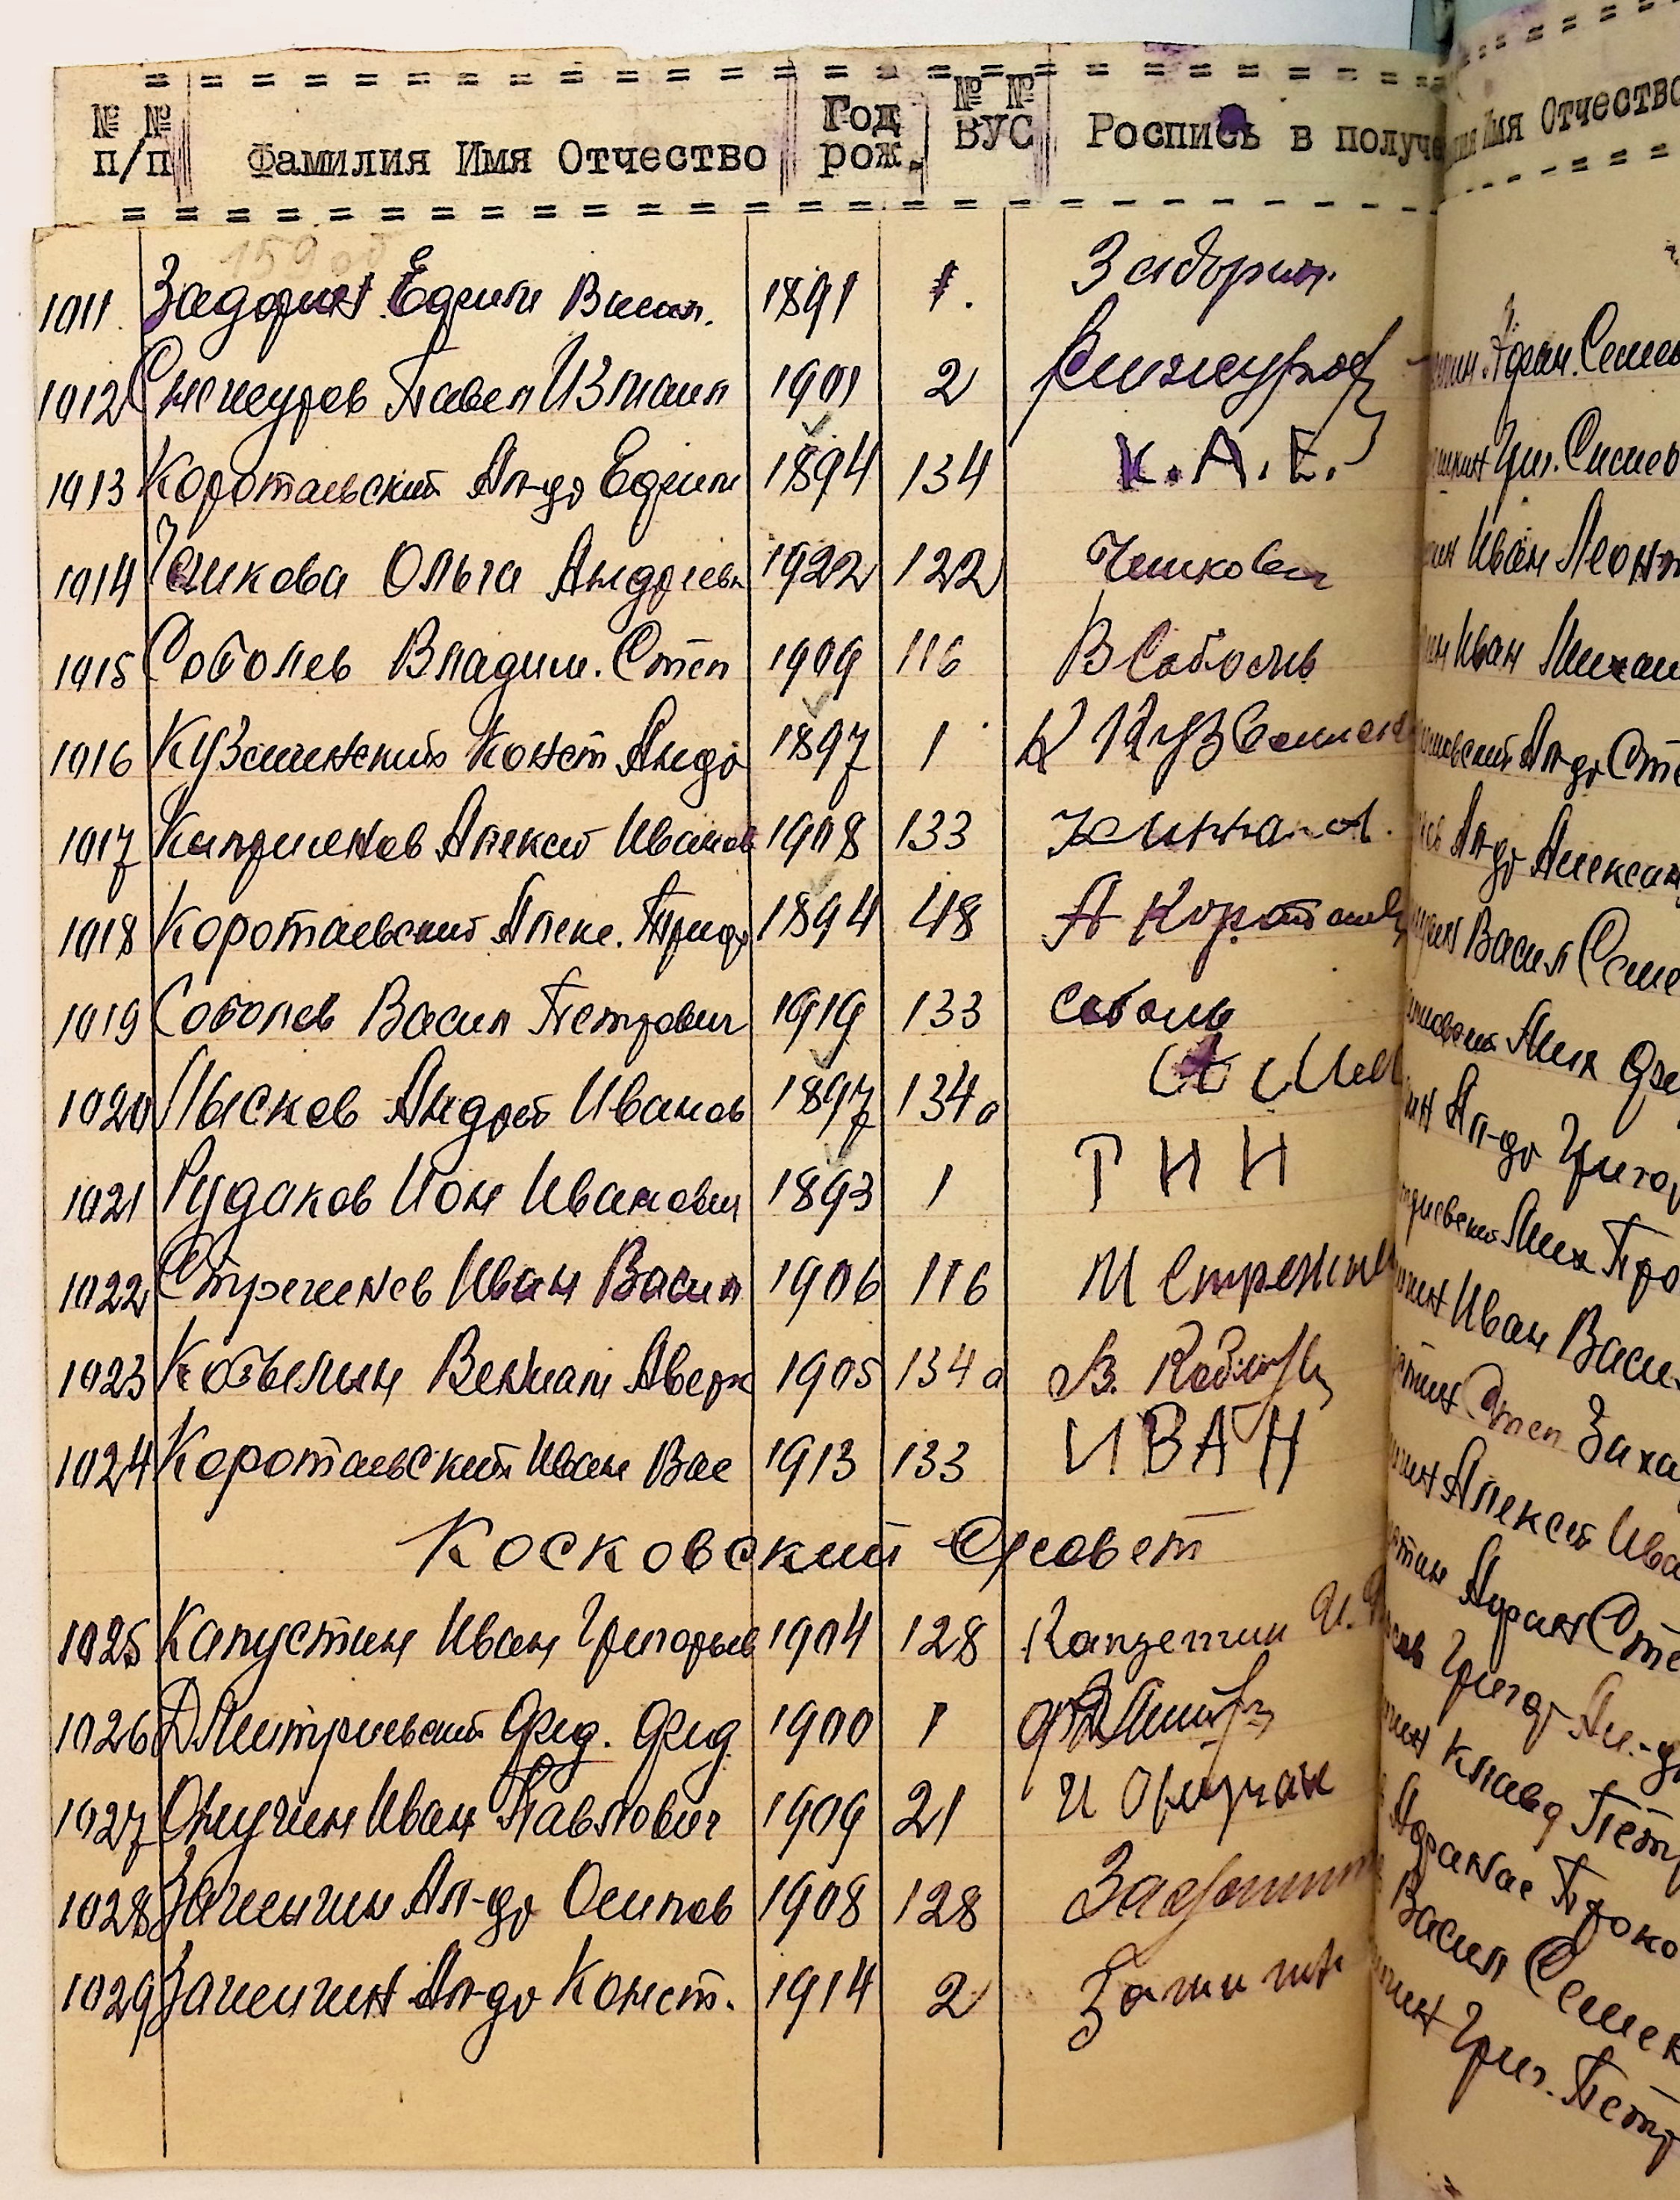 № № п/п Фамилия Имя Отчество Год рож. № № ВУС Роспись в получе
159 об
1011 Задорин Ефим Васил. 1891 1. Задорин.
1012 Снежуров Павел Измаил 1901 2
1013 Коротаевский Ал-др Ефим 1894 134 К.А.Е.
1014 Чешкова Ольга Андреевн 1922 122 Чешкова
1015 Соболев Владим. Степ 1909 116 В Соболев
1016 Кузьминский Конст Андр 1897 1
1017 Алексей Иванов 1908 133
1018 Коротаевский Алекс. Андр 1894 48 А Коротаев
1019 Соболев Васил Петрович 1919 133 Соболь
1020 Лысков Андрей Иванов 1897 134а
1021 Рудаков Ион Иванович 1893 1 Р И И
1022 Стреженев Иван Васил 1906 116 И Стрежнев
1023 Кобылин Вениам Аверк 1905 134а В.
1024 Коротаевский Иван Вас 1913 133 ИВАН
Косковский С/совет
1025 Капустин Иван Григорьев 1904 128 Капустин И.
1026 Дмитриевский Фед. Фед. 1900 1
1027 Онучин Иван Павлович 1909 21 И Онучин
1028 Зашенгин Ал-др Осипов 1908 128
1029 Зашенгин Ал-др Конст. 1914 2
Имя Отчество
Афан. Семен
Григ.
Иван Леонт
Иван Михаи
Ал-др Сте
Ал-др Алексан
Васил Семе
Мих Фе
Ал-др Григор
Мих Про
Иван Васи
Степ Заха
Алексей Ива
Сте
Григор Ал-др
Клавд Петр
Афанас Проко
Васил Семен
Григ. Петр